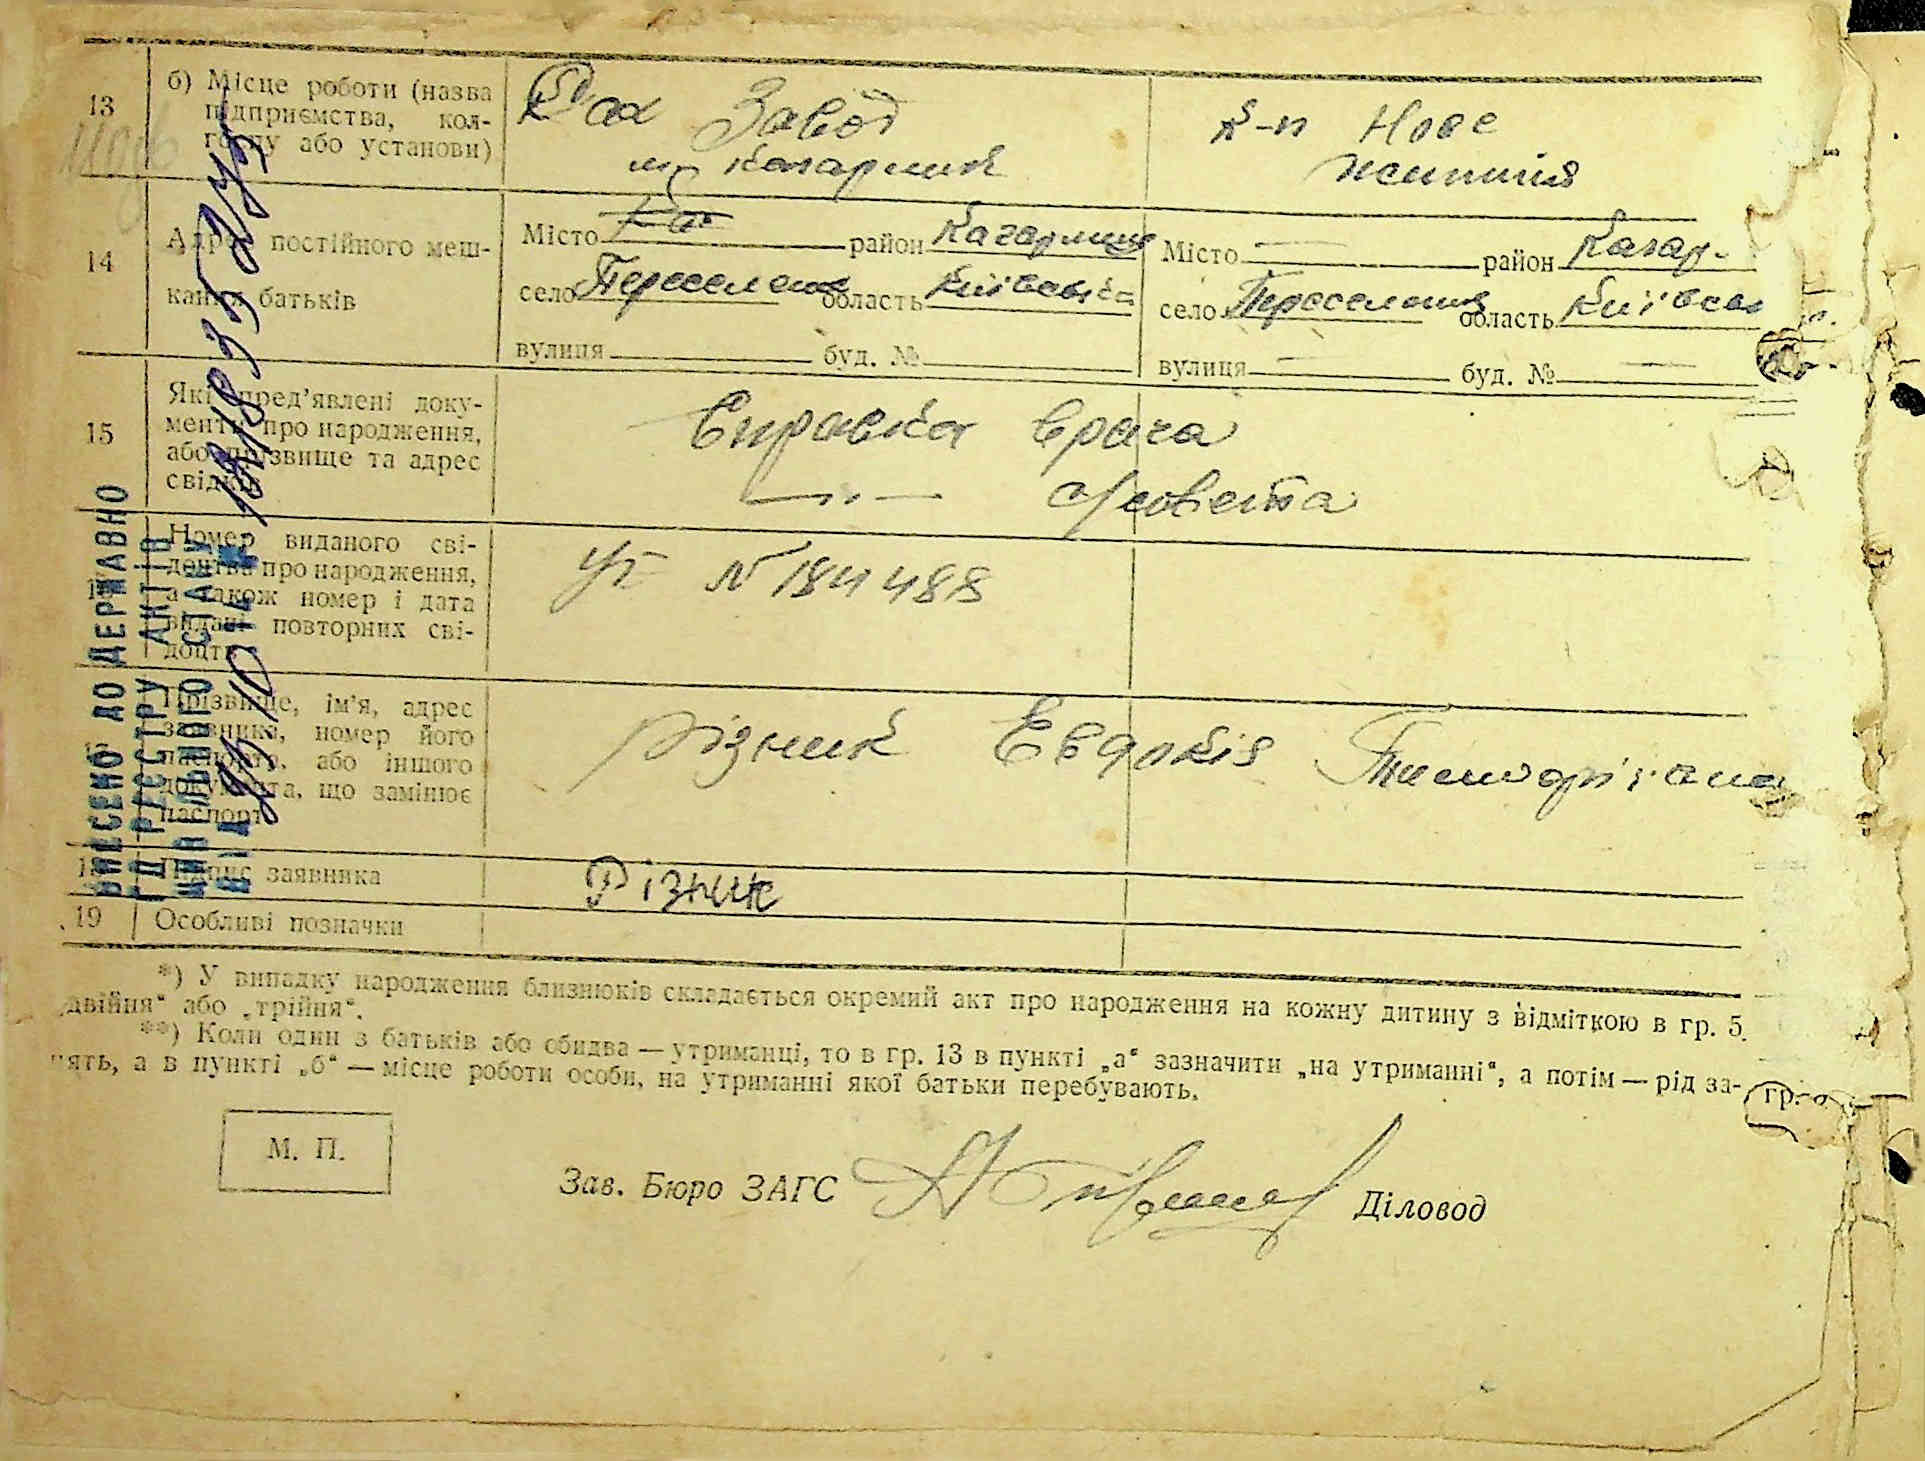 13
б) Місце роботи (назва
підприємства, кол-
госпу або установи)
Рад Завод
м. Кагарлик
к-п Нове
життя
14
Адрес постійного меш-
кання батьків
Місто район Кагарлицьк
село Переселення область Київська
вулиця буд. №
Місто район Кагар.
село Переселення область Київськ
вулиця буд. №
15
Які пред'явлені доку-
менти про народження,
або прізвище та адрес
свідків
Справка врача
—„— с/совета
16
Номер виданого сві-
доцтва про народження,
а також номер і дата
видачі повторних сві-
доцтв
УБ № 184488
Прізвище, ім'я, адрес
заявника, номер його
паспорта, або іншого
документа, що замінює
паспорт
Різник Евдокія
Підпис заявника
Різник
19
Особливі позначки
ВНЕСЕНО ДО ДЕРЖАВНО
ГО РЕЄСТРУ АКТІВ
ЦИВІЛЬНОГО СТАНУ
*) У випадку народження близнюків складається окремий акт про народження на кожну дитину з відміткою в гр. 5
„двійня“ або „трійня“.
**) Коли один з батьків або обидва — утриманці, то в гр. 13 в пункті „а“ зазначити „на утриманні“, а потім — рід за-
нять, а в пункті „б“ — місце роботи особи, на утриманні якої батьки перебувають.
гр.
М. П.
Зав. Бюро ЗАГС
Діловод